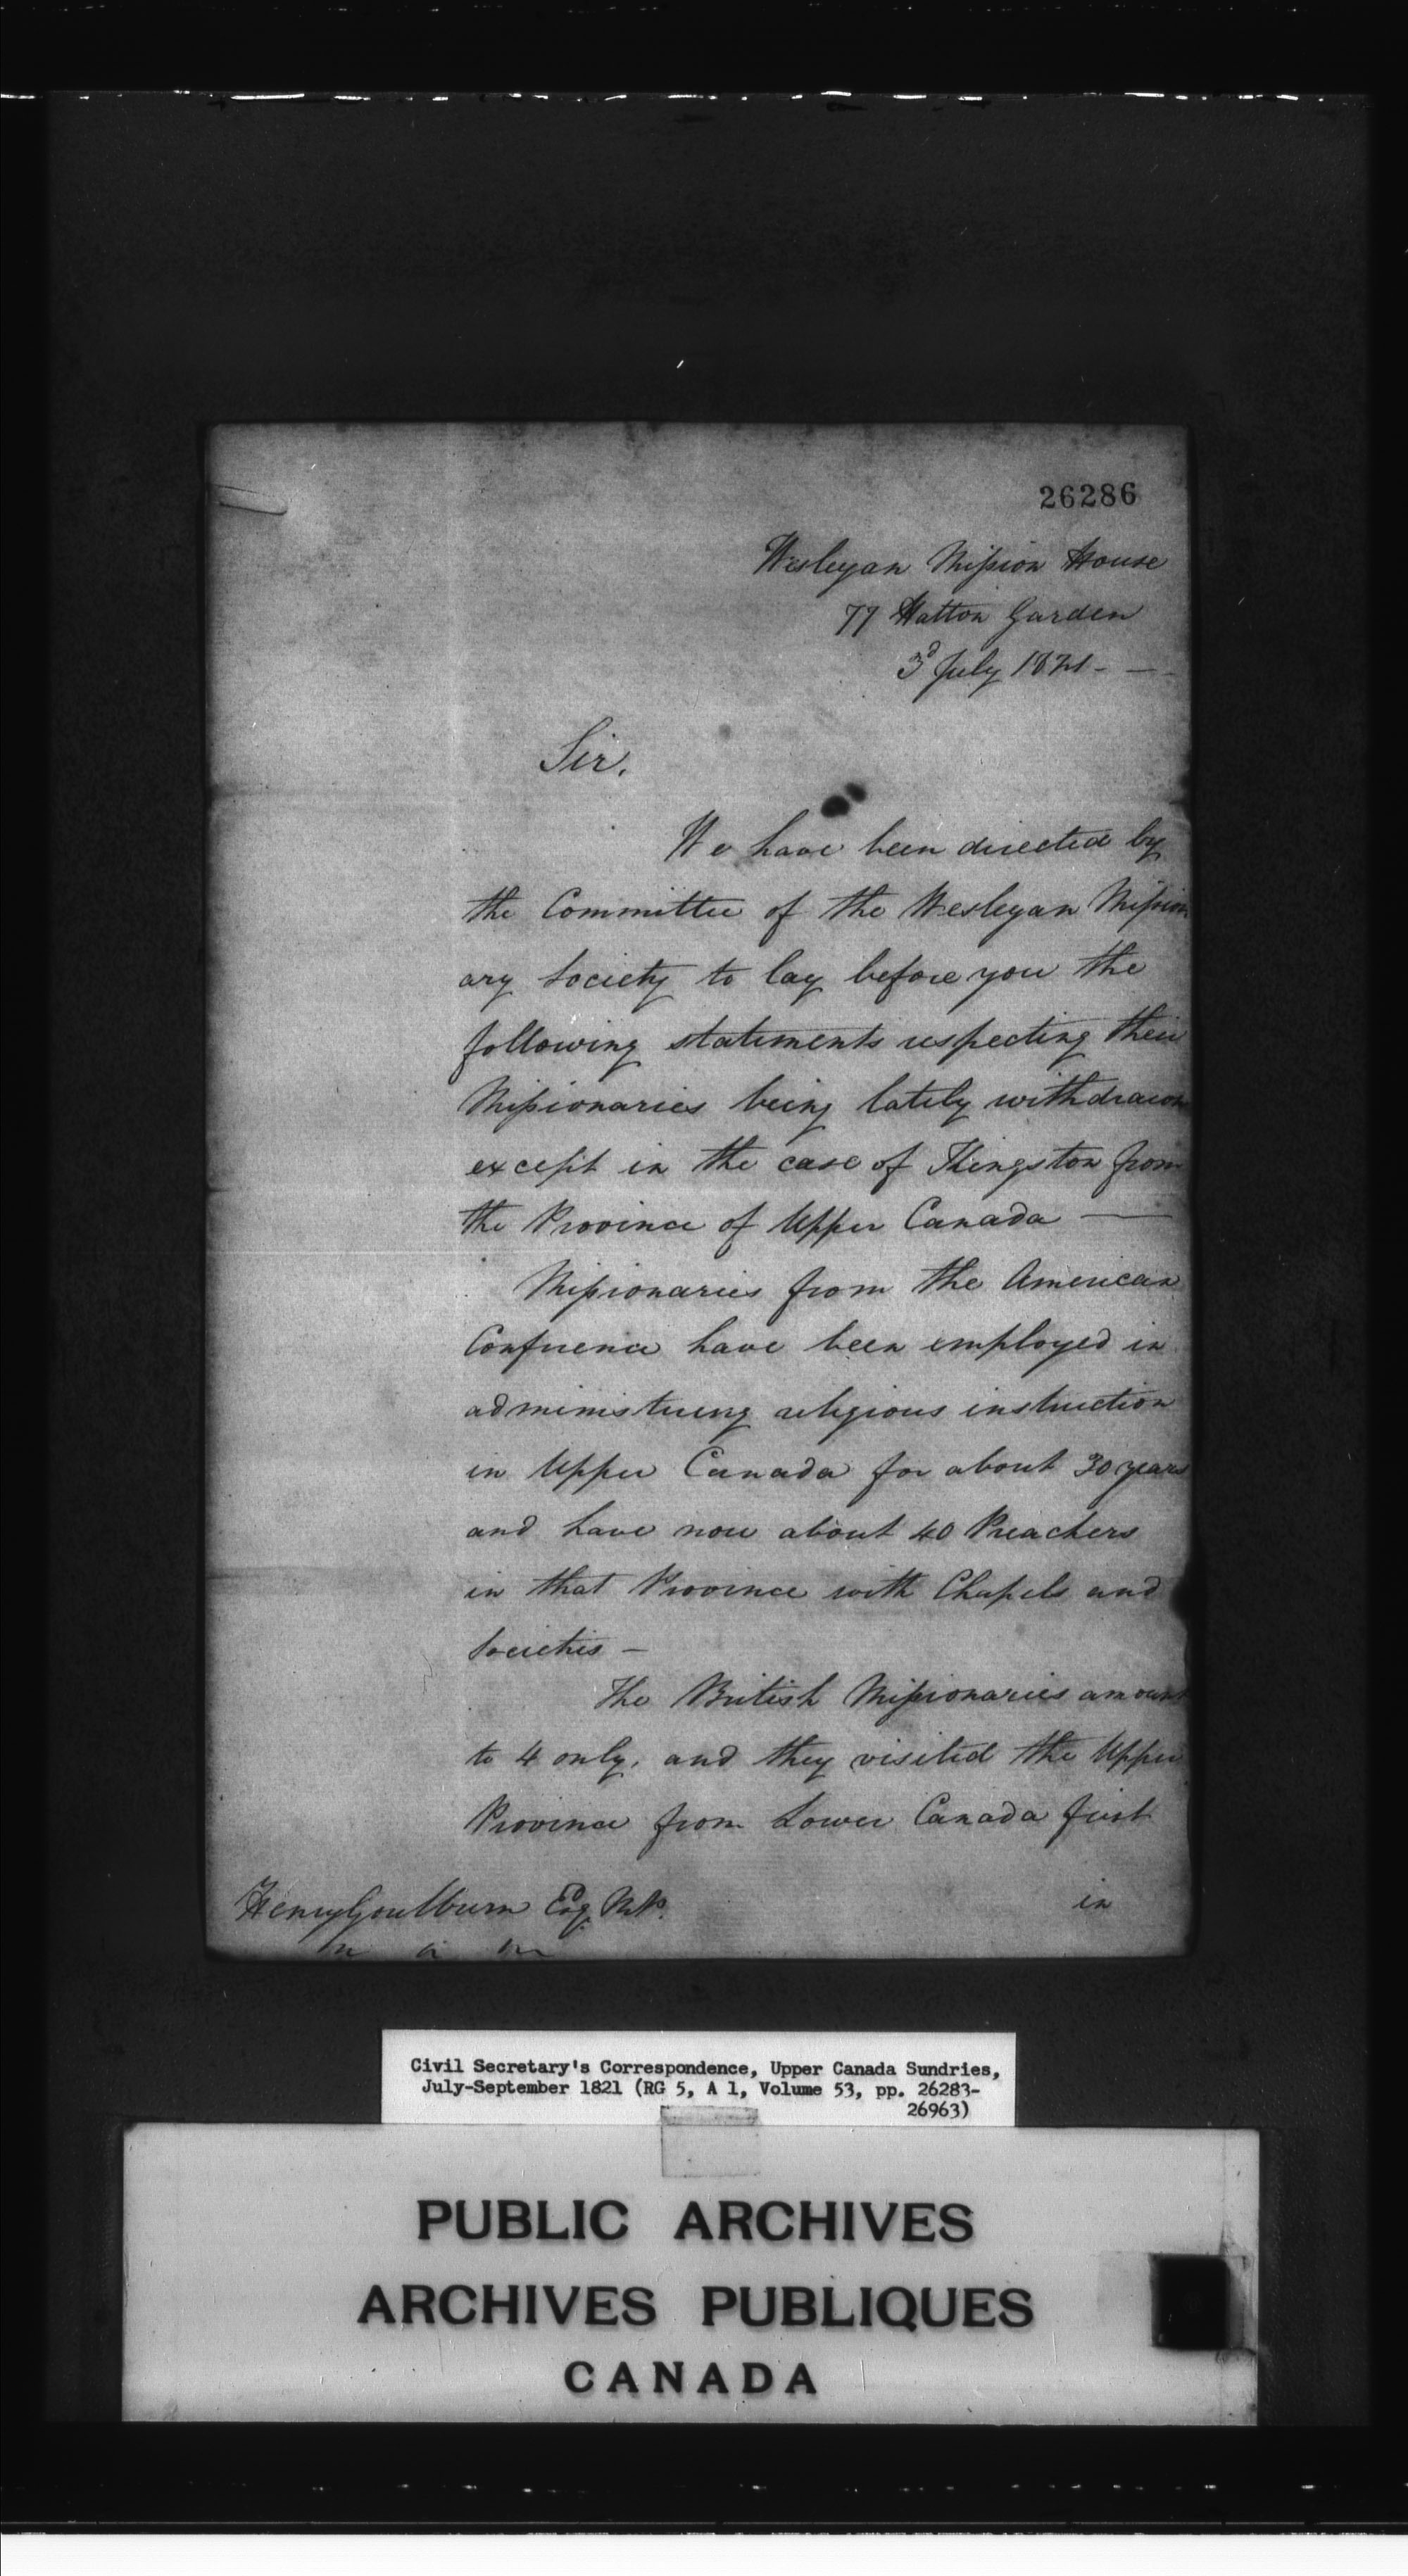 26286
Wesleyan Mission House
77 Hatton Garden
3d July 1821 - —
Sir,
We have been directed by
the Committee of the Wesleyan Mission
ary Society to lay before you the
following statements respecting their
Missionaries being lately withdrawn
except in the case of Kingston from
the Province of Upper Canada —
Missionaries from the American
Conference have been employed in
administering religious instruction
in Upper Canada for about 30 years
and have now about 40 Preachers
in that Province with Chapels and
Societies —
The British Missionaries amount
to 4 only, and they visited the Upper
Province from Lower Canada first
in
Henry Goulburn Esq. M.P.
Civil Secretary's Correspondence, Upper Canada Sundries,
July-September 1821 (RG 5, A 1, Volume 53, pp. 26283-
26963)
PUBLIC ARCHIVES
ARCHIVES PUBLIQUES
CANADA